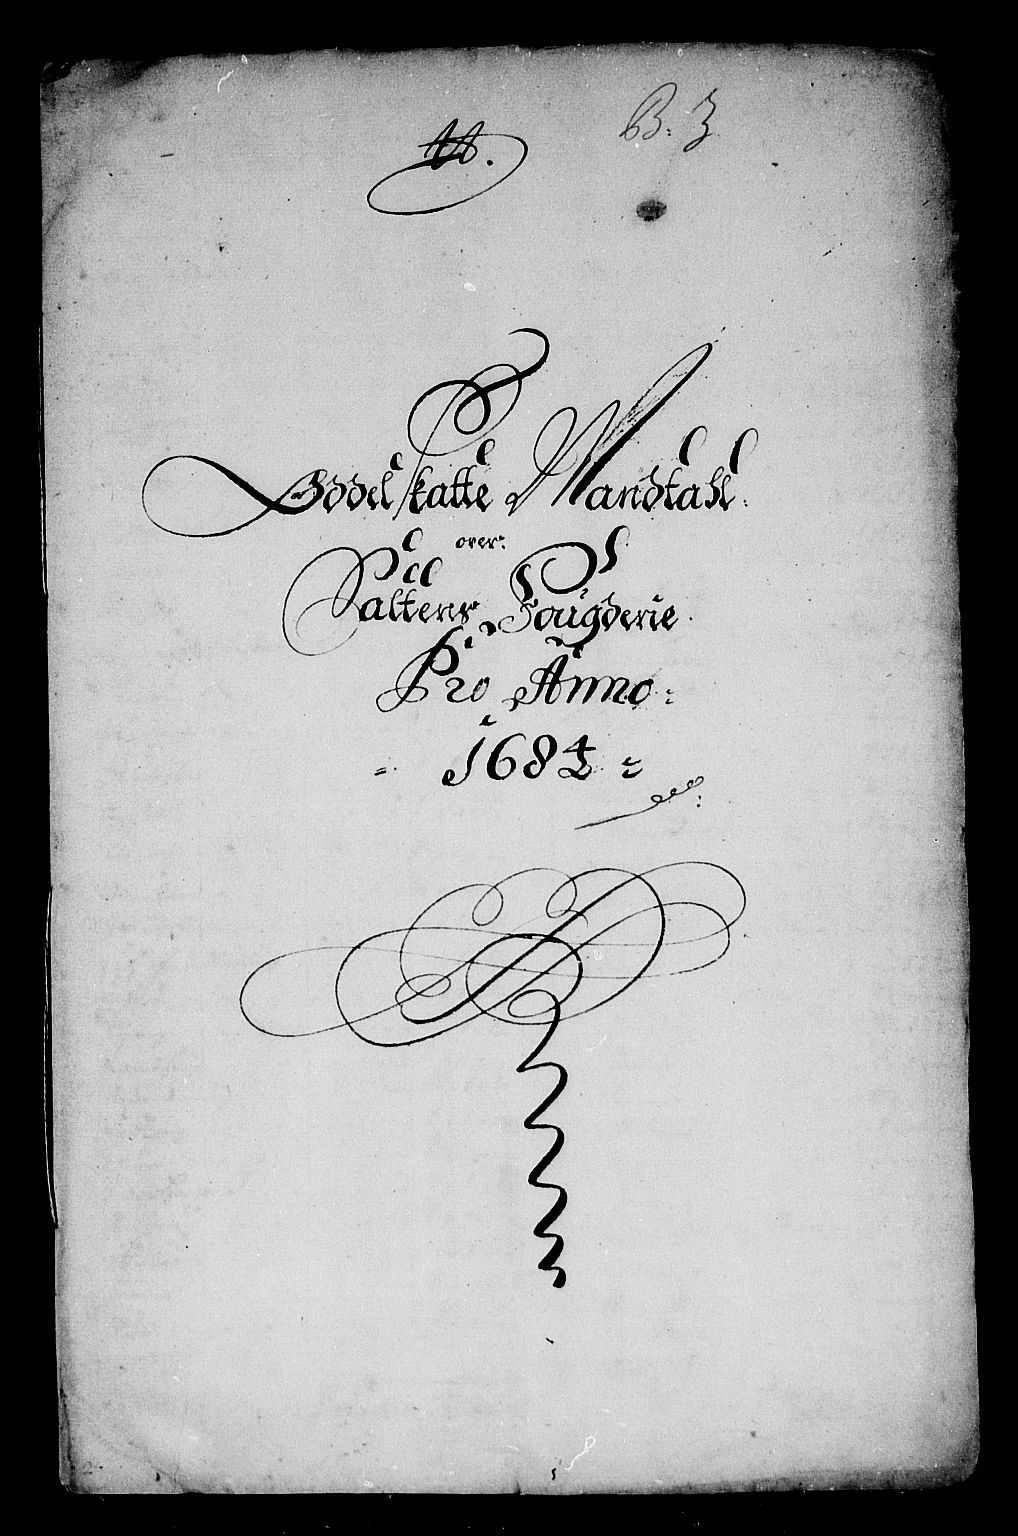 B: 3
Oddel skatte Mandtahl:
over:
Saltens Fougderie.
Pro Anno:
1684